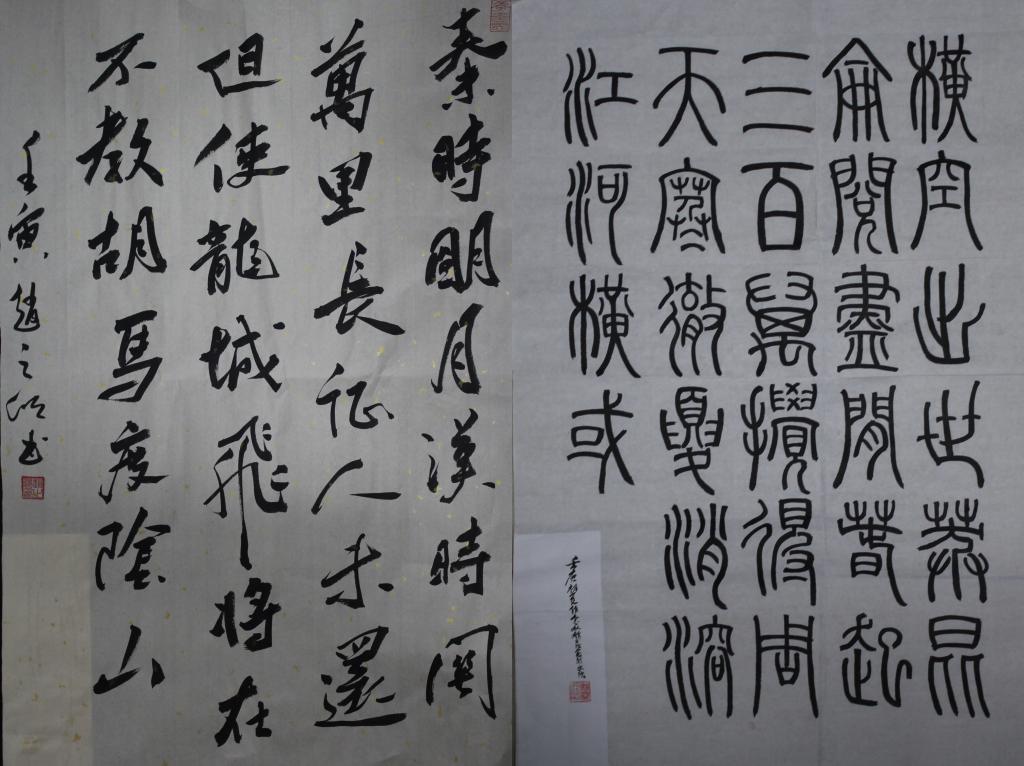 秦時明月漢時關
萬里長征人未還
但使龍城飛將在
不教胡馬度陰山
壬寅趙之
橫空出世莽昆
侖閱盡閒春起
三百萬攪得周
天寒徹夏消溶
江河橫或